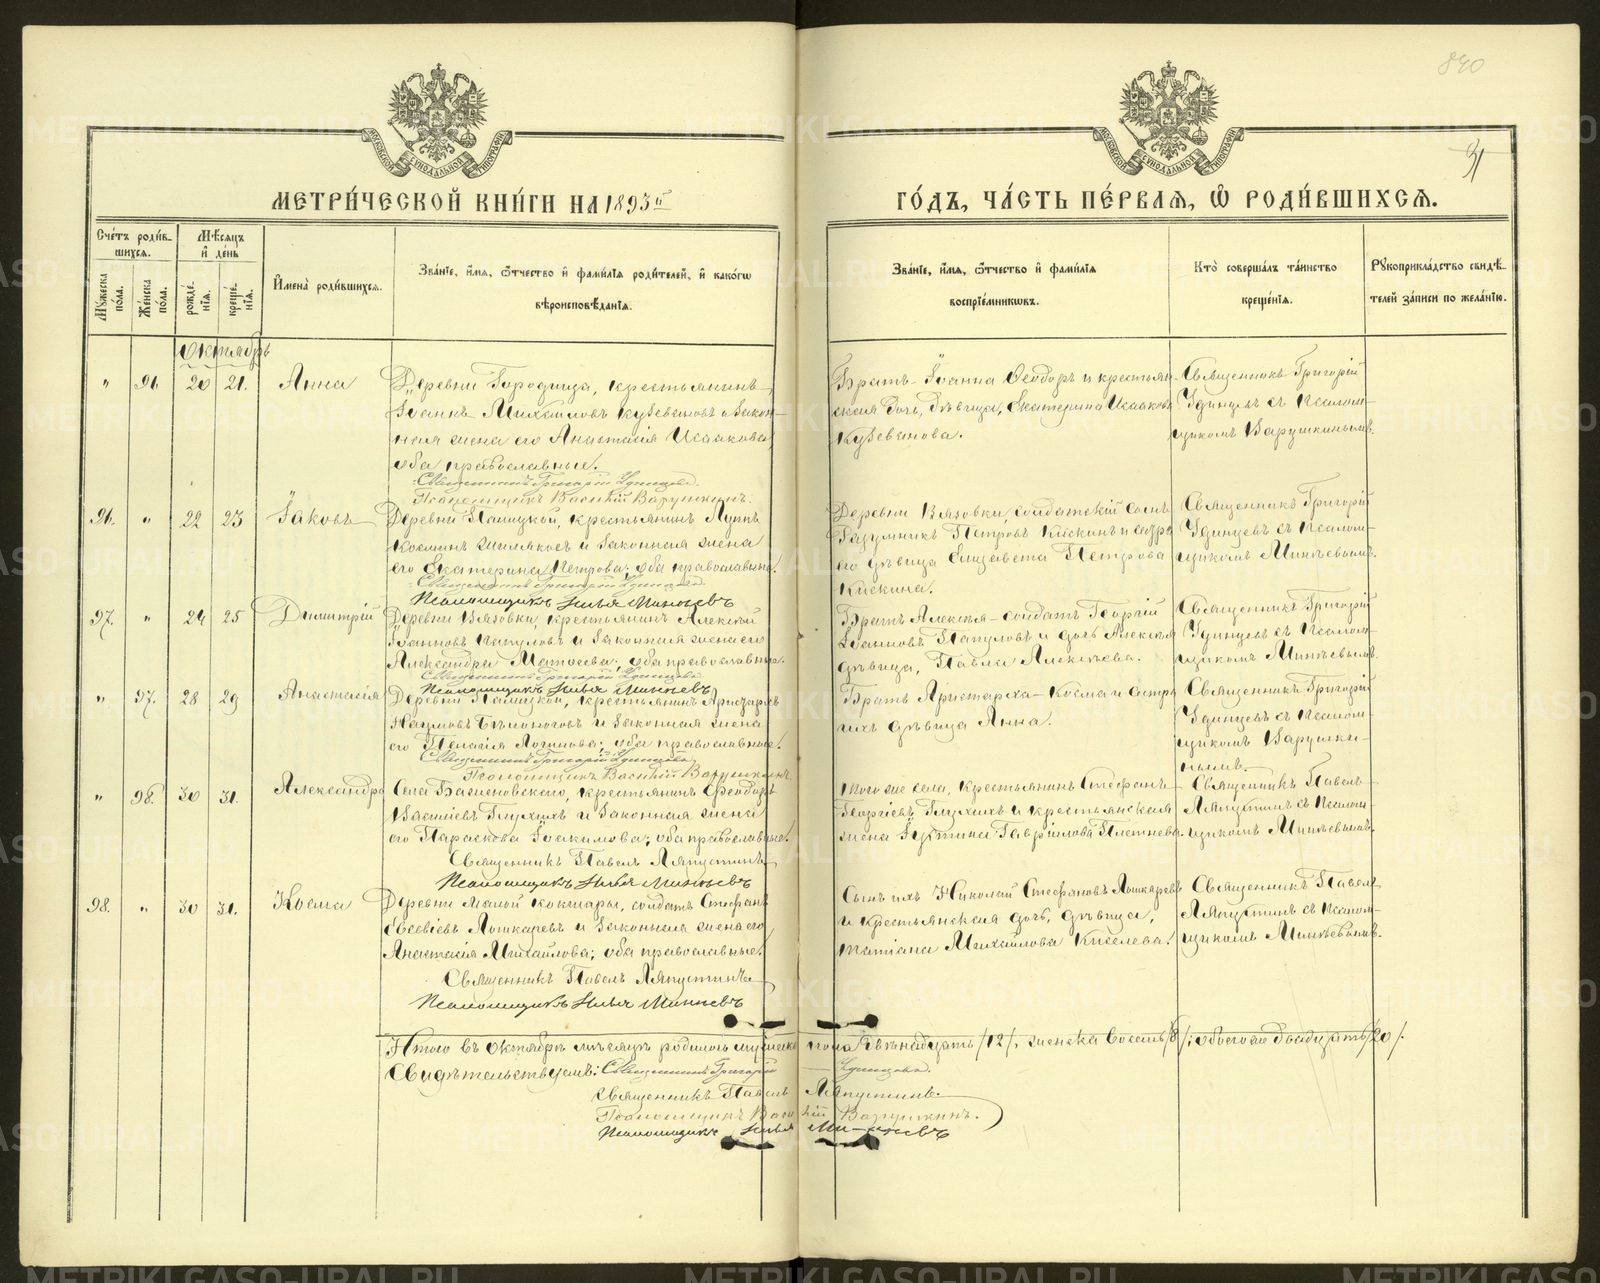 840
31
МЕТРИ́ЧЕСКОЙ КНИ́ГИ НА 1893й
ГО́ДЪ, ЧА́СТЬ ПЕ́РВАѦ, Ѡ҆ РОДИ́ВШИХСѦ.
МОСКОВСКОЙ СѴНОДАЛЬНОЙ ТИПОГРАФІИ
МОСКОВСКОЙ СѴНОДАЛЬНОЙ ТИПОГРАФІИ
Сче́тъ роди́в-
шихсѧ.
Мꙋ́жеска по́ла.
Же́нска по́ла.
Мѣ́сѧцъ
и҆ де́нь
рожде́-
нїѧ.
креще́-
нїѧ.
И҆мена̀ роди́вшихсѧ.
Зва́нїе, и҆́мѧ, ѻ҆́тчество и҆ фами́лїѧ роди́телей, и҆ како́гѡ
вѣроисповѣ́данїѧ.
Зва́нїе, и҆́мѧ, ѻ҆́тчество и҆ фами́лїѧ
воспрїе́мникѡвъ.
Кто̀ соверша́лъ та́инство
креще́нїѧ.
Рꙋкоприкла́дство свидѣ́-
телей за́писи по жела́нїю.
Октябрь
" 96. 20 21. Анна
Деревни Городища, крестьянинъ
Іоаннъ Михаиловъ и закон-
ная жена его Анастасія Исаакова,
оба православные.
Священникъ Григорій Удинцевъ.
Псаломщикъ Василій Варушкинъ.
Братъ Іоанна Ѳеодоръ и крестьян-
ская дочь, дѣвица, Екатерина Исаакова
Священникъ Григорій
Удинцевъ съ псалом-
щикомъ Варушкинымъ.
96. " 22 23 Іаковъ
Деревни крестьянинъ Луппъ
Косминъ и законная жена
его Екатерина Петрова; оба православные.
Священникъ Григорій Удинцевъ.
Псаломщикъ Илья Минѣевъ
Деревни Вязовки, солдатскій сынъ
Петровъ Кискинъ и сестра
его дѣвица Елизавета Петрова
Кискина.
Священникъ Григорій
Удинцевъ съ псалом-
щикомъ Минѣевымъ.
97. " 24 25 Димитрій
Деревни Вязовки, крестьянинъ Алексій
Іоанновъ и законная жена его
Александра Матѳеева; оба православные.
Священникъ Григорій Удинцевъ
Псаломщикъ Илья Минѣевъ
Братъ Алексія - солдатъ Георгій
Іоанновъ и дочь Алексія
дѣвица, Павла Алексѣева.
Священникъ Григорій
Удинцевъ съ псалом-
щикомъ Минѣевымъ.
" 97. 28 29 Анастасія
Деревни крестьянинъ Аристархъ
Наумовъ Бѣлоноговъ и законная жена
его Пелагія Логинова; оба православные.
Священникъ Григорій Удинцевъ
Псаломщикъ Василій Варушкинъ.
Братъ Аристарха - Косма и сестра
ихъ дѣвица Анна.
Священникъ Григорій
Удинцевъ съ псалом-
щикомъ Варушки-
нымъ.
" 98. 30 31. Александра
Села крестьянинъ Ѳеодоръ
Василіевъ Глухихъ и законная жена
его Параскева Іоакимова; оба православные.
Священникъ Павелъ Ляпустинъ
Псаломщикъ Илья Минѣевъ
того же села, крестьянинъ Стефанъ
Георгіевъ Глухихъ и крестьянская
жена Іустина Гавріилова Плетнева.
Священникъ Павелъ
Ляпустинъ съ псалом-
щикомъ Минѣевымъ.
98. " 30 31. Косма
Деревни Малой Кокшары, солдатъ Стефанъ
Евсевіевъ Лошкаревъ и законная жена его
Анастасія Михайлова; оба православные.
Священникъ Павелъ Ляпустинъ
Псаломщикъ Илья Минѣевъ
Сынъ ихъ Николай Стефановъ Лошкаревъ
и крестьянская дочь, дѣвица,
Татіана Михайлова Киселева.
Священникъ Павелъ
Ляпустинъ съ псалом-
щикомъ Минѣевымъ.
Итого въ Октябрѣ мѣсяцѣ родилось мужеска пола двѣнадцать /12/, женска восемь /8/; обоего двадцать /20/.
Свидѣтельствуемъ: Священникъ Григорій Удинцевъ.
Священникъ Павелъ Ляпустинъ.
Псаломщикъ Василій Варушкинъ.
Псаломщикъ Илья Минѣевъ
METRIKI.GASO-URAL.RU